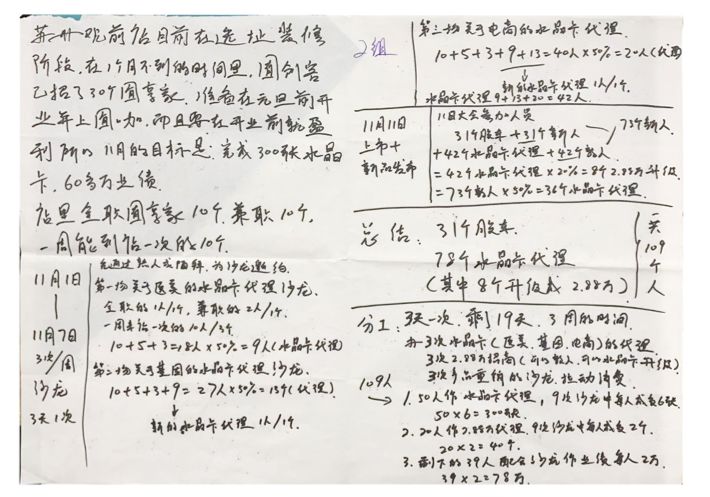 第二册 观前店目前在选址装修
阶段,在1个月不到的时间里,圆创客
已招了30个圆享家,准备在元旦前开
业并上圆.加,而且要在开业前就盈
利 所以11月的目标是:完成300张水晶
卡,60多万业绩.
店里 全职圆享家10个,兼职10个,
一周能到店一次的10个.
11月1日
|
11月7日
3次/周
沙龙
3天1次
先通过熟人或陌拜,为沙龙邀约.
第一场关于医美的水晶卡代理沙龙.
全职的1人/1个,兼职的2人/1个.
一周来店一次的10人/3个
10+5+3=18人×50%=9人(水晶卡代理)
第二场关于基因的水晶卡代理沙龙.
10+5+3+9=27人×50%=13个(代理)
↓
新的水晶卡代理 1人/1个.
2组
第三场关于电商的水晶卡代理.
10+5+3+9+13=40人×50%=20人(代理)
↓
新的水晶卡代理 1人/1个.
水晶卡代理 9+13+20=42人.
11月11日
上市+
新品发布
11日大会参加人员
31个股东+31个新人
73个新人.
+42个水晶卡代理+42个新人
=42个水晶卡代理×20%=8个2.88万升级
=73个新人×50%=36个水晶卡代理.
总结:31个股东
78个水晶卡代理
(其中8个升级成2.88万)
一共
109
个
人
分工:3天一次,剩19天,3周的时间
办3次水晶卡(医美、基因、电商)的代理
3次2.88万招商(可以新人,可以水晶卡升级)
3次产品重销的沙龙,拉动消费.
109人
→ 1.50人作水晶卡代理,9次沙龙中每人成交6张
50×6=300张
2.20人作2.88万代理,9次沙龙中每人成交2个.
20×2=40个.
3.剩下的39人配合沙龙作业绩每人2万.
39×2=78万.